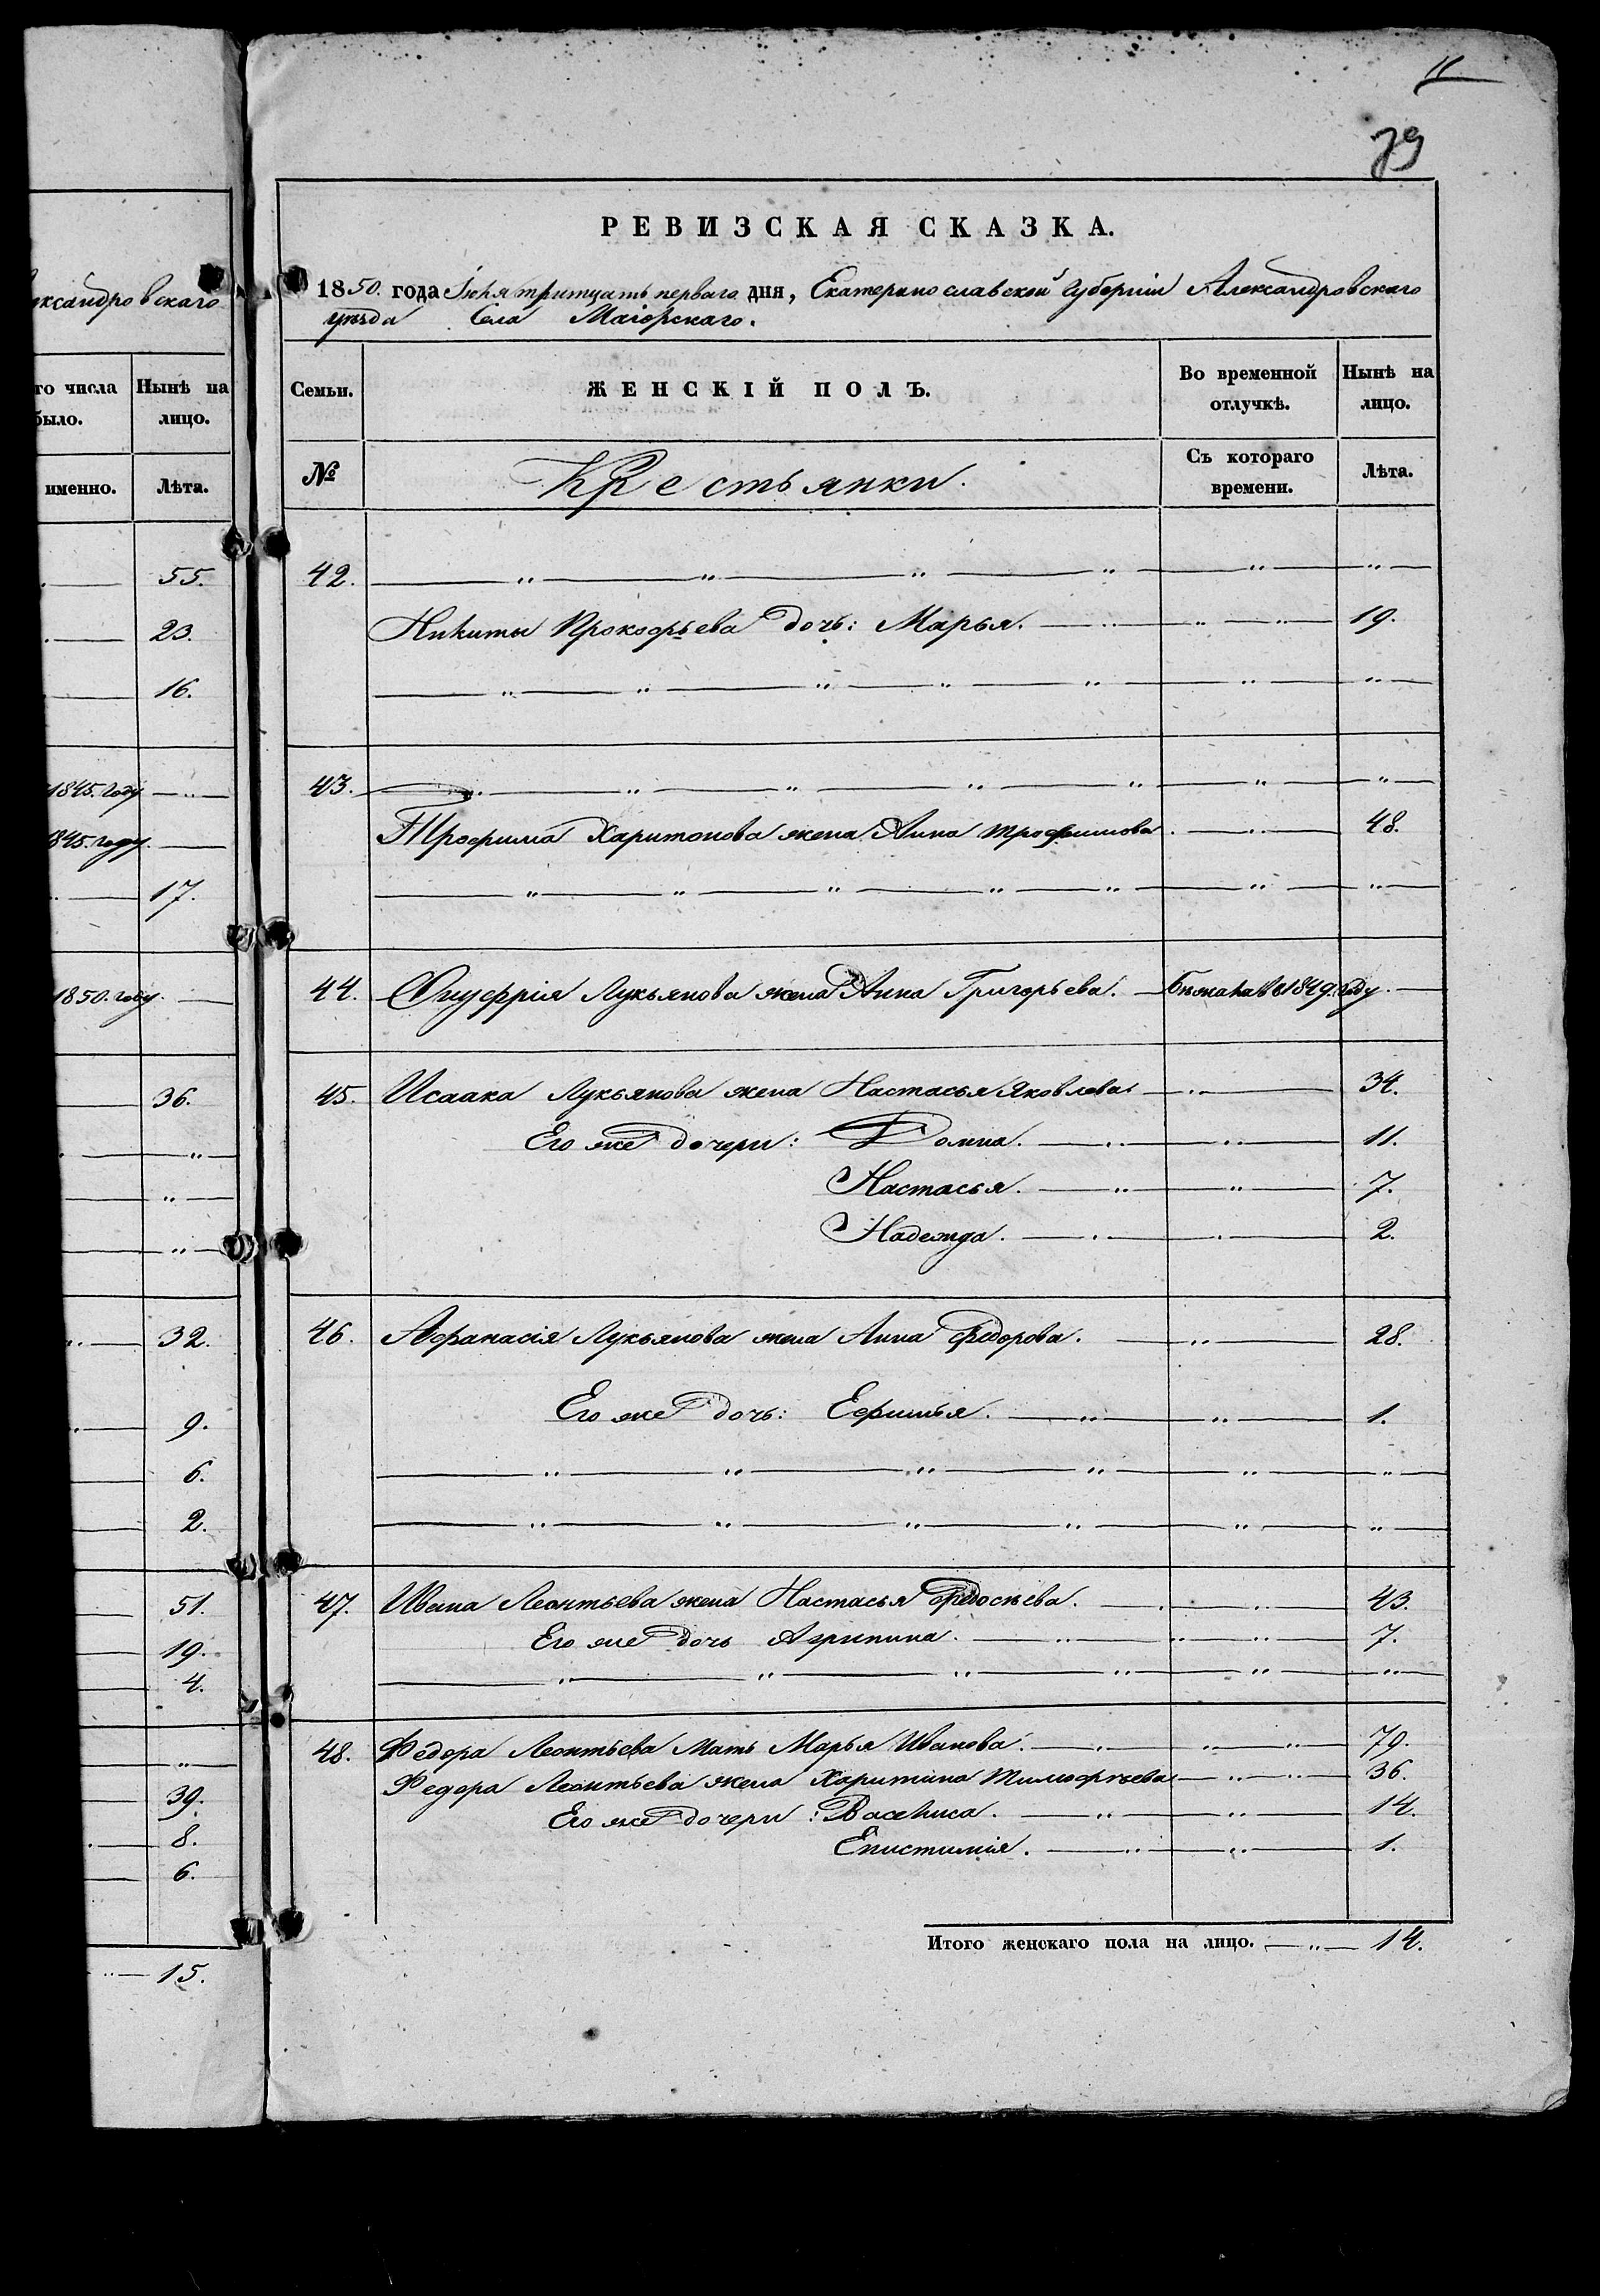 11
79
ександровскаго
го числа
было.
Нынѣ на
лицо.
именно.
Лѣта.
55.
23.
16.
1845. году
1845. году.
17.
1850. году.
36.
"
"
"
32.
9.
6.
2.
51.
19.
4.
"
39.
8.
6.
15.
РЕВИЗСКАЯ СКАЗКА.
1850. года Іюля тритцать перваго дня, Екатеринославской Губерніи Александровскаго
уѣзда Села Маіорскаго.
Семьи. ЖЕНСКІЙ ПОЛЪ. Во временной отлучкѣ. Нынѣ на лицо.
№ Крестьянки. Съ котораго времени. Лѣта.
42. — " — " — " — " — " — " —
Никиты Прокофьева дочь: Марья. — " — " — " — 19.
— " — " — " — " — " — " — " —
43. — " — " — " — " — " — " — " —
Трофима Харитонова жена Анна Трофимова. — " — 48.
— " — " — " — " — " — " — " —
44. Онуфрія Лукьянова жена Анна Григорьева. — Бѣжала въ 1849. году. —
45. Исаака Лукьянова жена Настасья Яковлева. — " — 34.
Его же дочери: Домна. — " — " — 11.
Настасья. — " — " — 7.
Надежда. — " — " — 2.
46. Афанасія Лукьянова жена Анна Федорова. — " — 28.
Его же дочь: Ефимья. — " — " — 1.
— " — " — " — " — " — " —
— " — " — " — " — " — " —
47. Ивана Леонтьева жена Настасья Федосѣева. — " — " — 43.
Его же дочь Агрипина. — " — " — " — 7.
— " — " — " — " — " — " —
48. Федора Леонтьева Мать Марья Иванова. — " — " — " — 79.
Федора Леонтьева жена Харитина Тимофѣева — " — " — 36.
Его же дочери: Василиса. — " — " — 14.
Епистимія. — " — " — 1.
Итого женскаго пола на лицо. — " — 14.